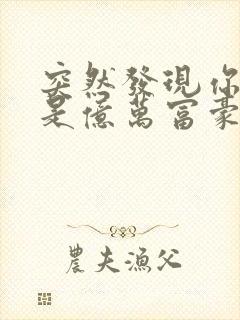 突然發現你
是億萬富豪
農夫漁父